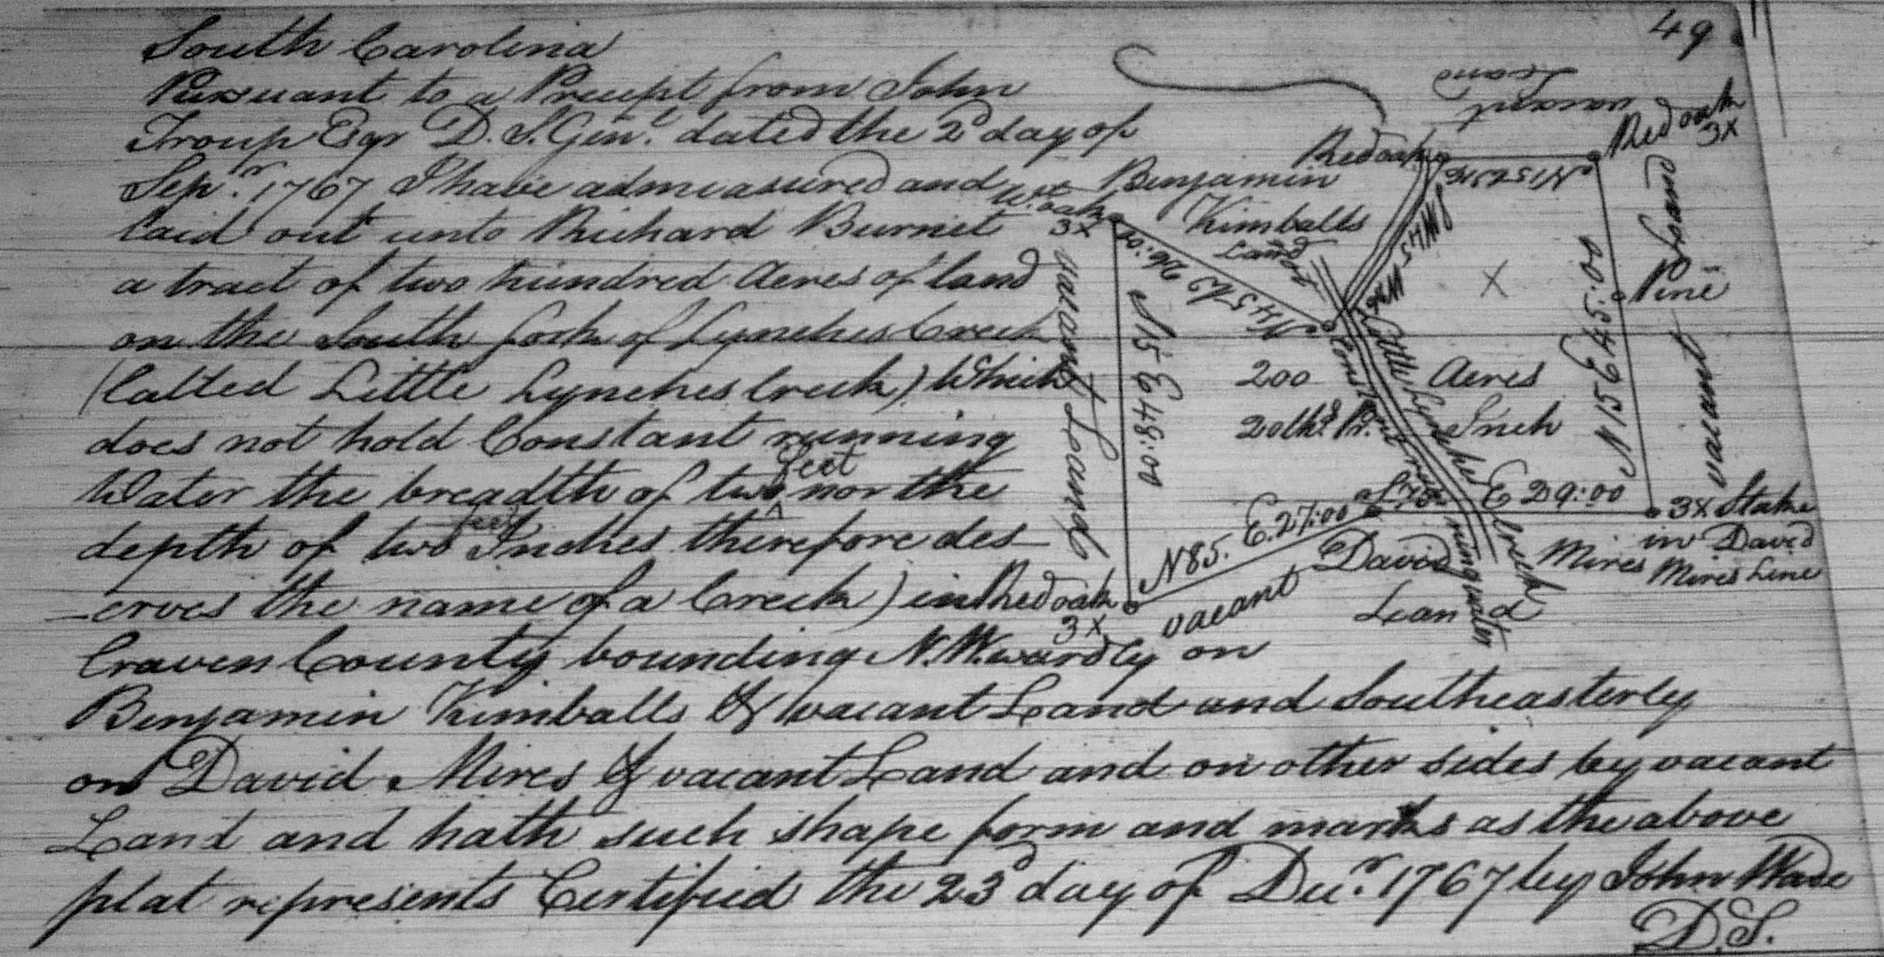 49
South Carolina
Pursuant to a Precept from John
Troup Esqr D. S. Genl. dated the 2d day of
Sepr. 1767 I have admeasured and
laid out unto Richard Burnet
a tract of two hundred Acres of land
on the South fork of Lynches Creek
(Called Little Lynches Creek) Which
does not hold Constant running
Water the breadth of two feet nor the
depth of two feet Inches therefore des-
-erves the name of a Creek) in
Craven County bounding N.W.wardly on
Benjamin Kimballs & vacant Land and Southeasterly
on David Mires & vacant Land and on other sides by vacant
Land and hath such shape form and marks as the above
plat represents Certified the 23d day of Decr. 1767 by John Wade
D.S.
vacant
Land
Red oak
3X
Red oak
Benjamin
Kimballs
Land
Wt oak
3X
vacant Land
N 15 E 48:00
N 15 E 45:00
Pine
vacant Land
X
200 Acres
20 Chs. Pr. Inch
Little Lynches Creek
Constant running water
N 85. E. 27:00
E 29:00
3X Stake
in David
Mires Line
David Mires
Land
vacant
Red oak
3X